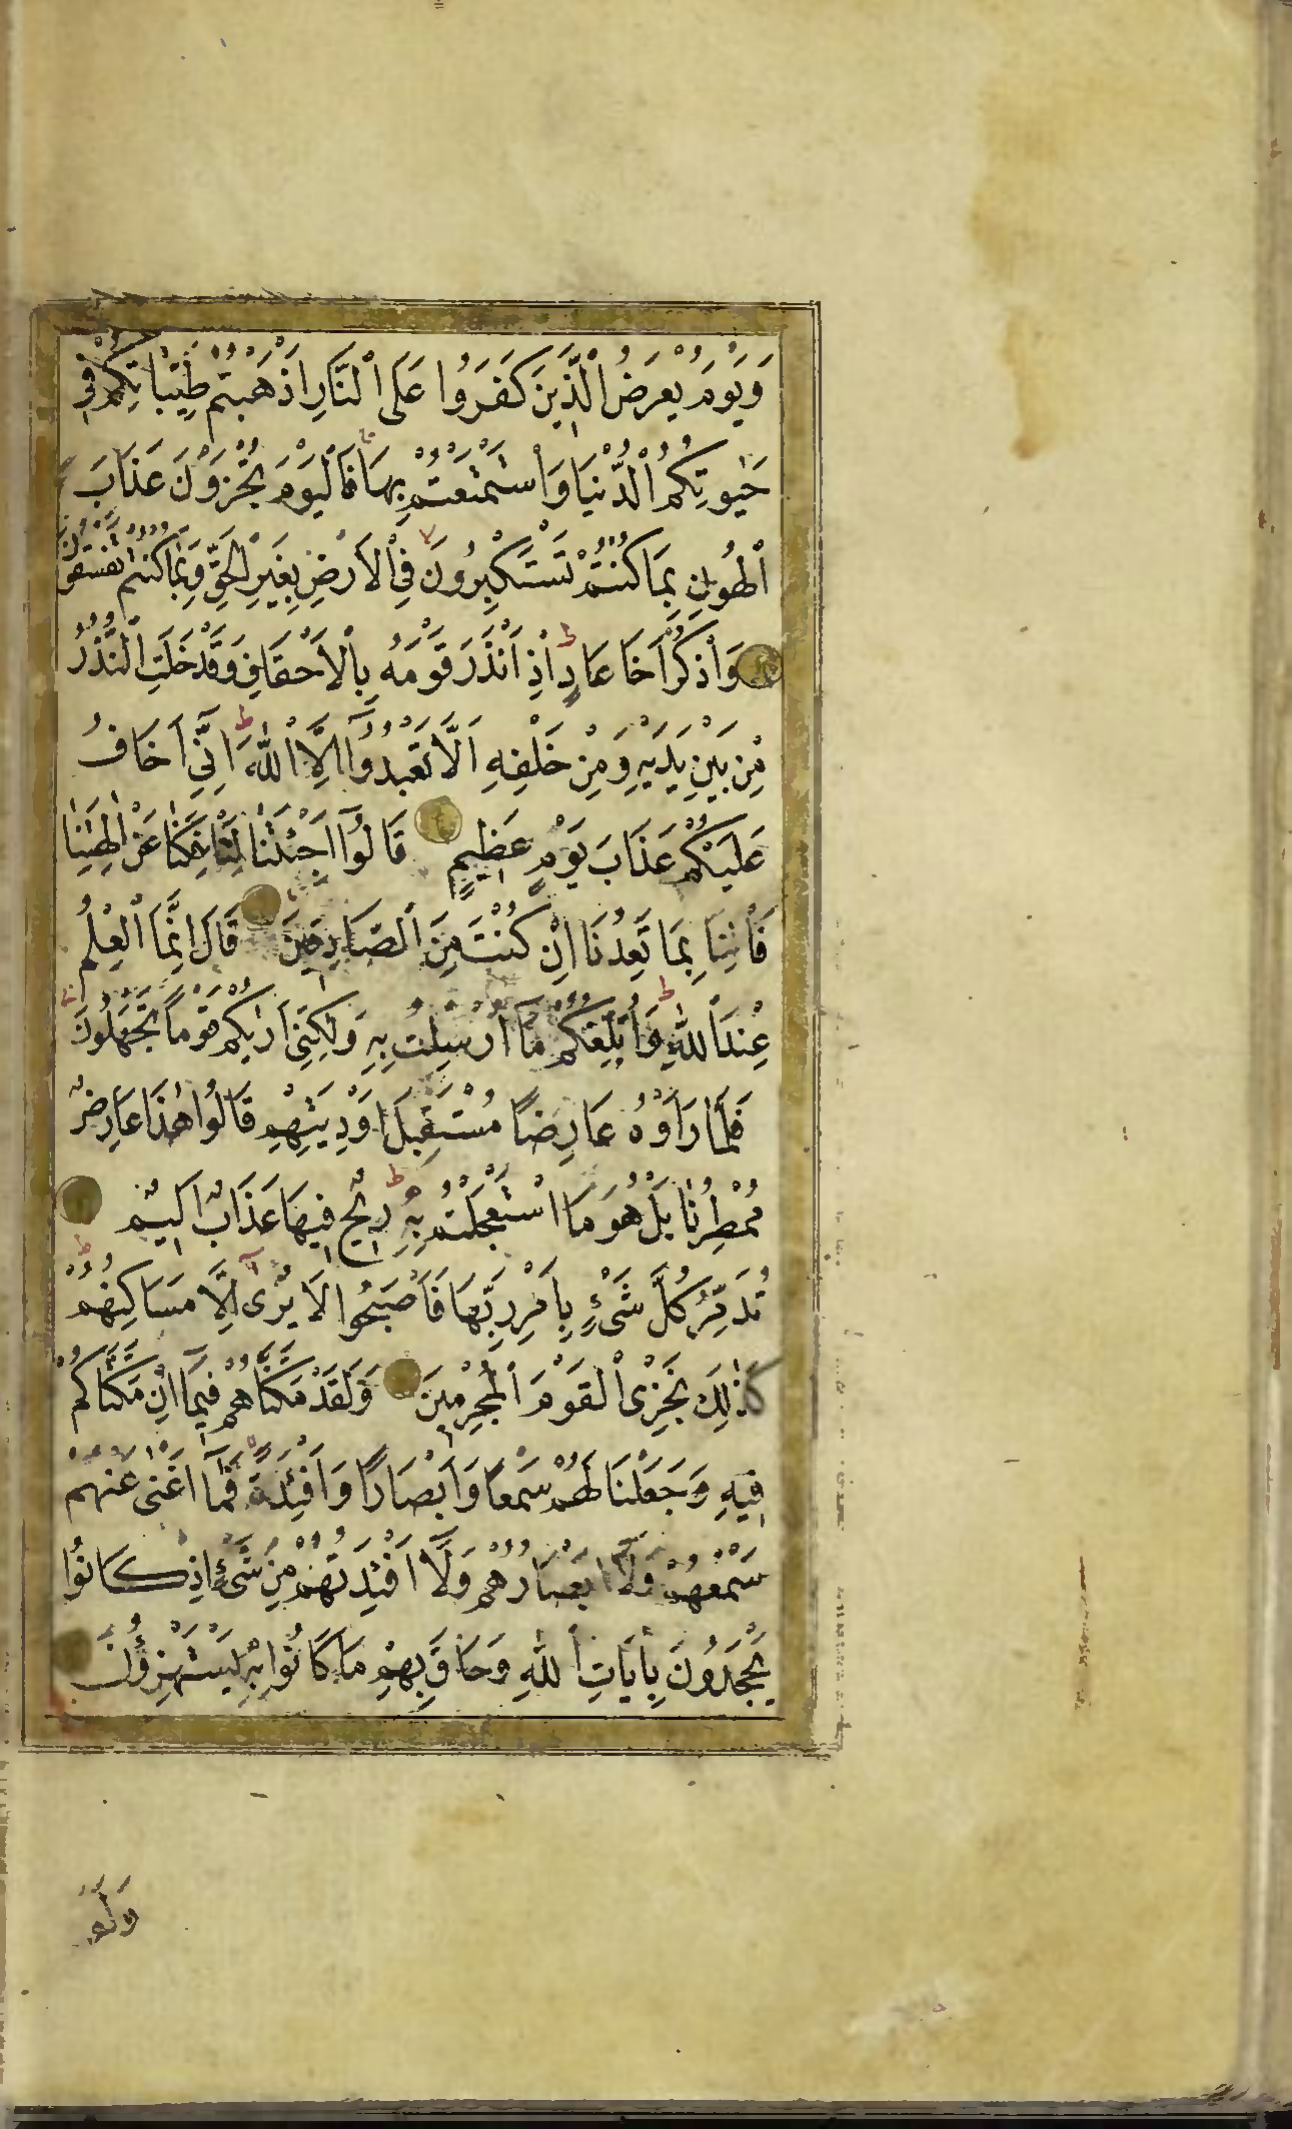 وَيَوْمَ يُعْرَضُ الَّذِينَ كَفَرُوا عَلَى النَّارِ اَذْهَبْتُمْ طَيِّبَاتِكُمْ فِي
حَيٰوتِكُمُ الدُّنْيَا وَاسْتَمْتَعْتُمْ بِهَا ۚ فَالْيَوْمَ تُجْزَوْنَ عَذَابَ
الْهُونِ بِمَا كُنْتُمْ تَسْتَكْبِرُونَ فِي الْاَرْضِ بِغَيْرِ الْحَقِّ وَبِمَا كُنْتُمْ تَفْسُقُونَ
وَاذْكُرْ اَخَا عَادٍ ط اِذْ اَنْذَرَ قَوْمَهُ بِالْاَحْقَافِ وَقَدْ خَلَتِ النُّذُرُ
مِنْ بَيْنِ يَدَيْهِ وَمِنْ خَلْفِهِ اَلَّا تَعْبُدُوٓا اِلَّا اللّٰهَ ط اِنِّي اَخَافُ
عَلَيْكُمْ عَذَابَ يَوْمٍ عَظِيمٍ قَالُوٓا اَجِئْتَنَا لِتَاْفِكَنَا عَنْ اٰلِهَتِنَا
فَاْتِنَا بِمَا تَعِدُنَا اِنْ كُنْتَ مِنَ الصَّادِقِينَ قَالَ اِنَّمَا الْعِلْمُ
عِنْدَ اللّٰهِ ط وَاُبَلِّغُكُمْ مَا اُرْسِلْتُ بِهِ وَلٰكِنِّي اَرٰيكُمْ قَوْمًا تَجْهَلُونَ
فَلَمَّا رَاَوْهُ عَارِضًا مُسْتَقْبِلَ اَوْدِيَتِهِمْ قَالُوا هٰذَا عَارِضٌ
مُمْطِرُنَا بَلْ هُوَ مَا اسْتَعْجَلْتُمْ بِهِ ط رِيحٌ فِيهَا عَذَابٌ اَلِيمٌ
تُدَمِّرُ كُلَّ شَيْءٍ بِاَمْرِ رَبِّهَا فَاَصْبَحُوا لَا يُرٰى اِلَّا مَسَاكِنُهُمْ ط
كَذٰلِكَ نَجْزِي الْقَوْمَ الْمُجْرِمِينَ وَلَقَدْ مَكَّنَّاهُمْ فِيمَآ اِنْ مَكَّنَّاكُمْ
فِيهِ وَجَعَلْنَا لَهُمْ سَمْعًا وَاَبْصَارًا وَاَفْئِدَةً فَمَآ اَغْنٰى عَنْهُمْ
سَمْعُهُمْ وَلَآ اَبْصَارُهُمْ وَلَآ اَفْئِدَتُهُمْ مِنْ شَيْءٍ اِذْ كَانُوا
يَجْحَدُونَ بِاٰيَاتِ اللّٰهِ وَحَاقَ بِهِمْ مَا كَانُوا بِهِ يَسْتَهْزِؤُنَ